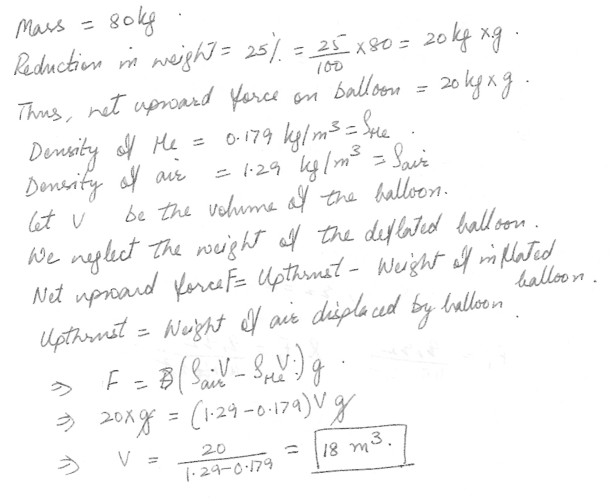 Mass = 80kg.
Reduction in weight = 25% = 25/100 × 80 = 20 kg × g.
Thus, net upward force on balloon = 20 kg × g.
Density of He = 0.179 kg/m³ = ρHe.
Density of air = 1.29 kg/m³ = ρair
Let V be the volume of the balloon.
We neglect the weight of the deflated balloon.
Net upward force F = Upthrust - Weight of inflated balloon.
Upthrust = Weight of air displaced by balloon.
⇒ F = (ρair V - ρHe V) g.
⇒ 20 × g = (1.29 - 0.179) V g
⇒ V = 20/(1.29-0.179) = 18 m³.